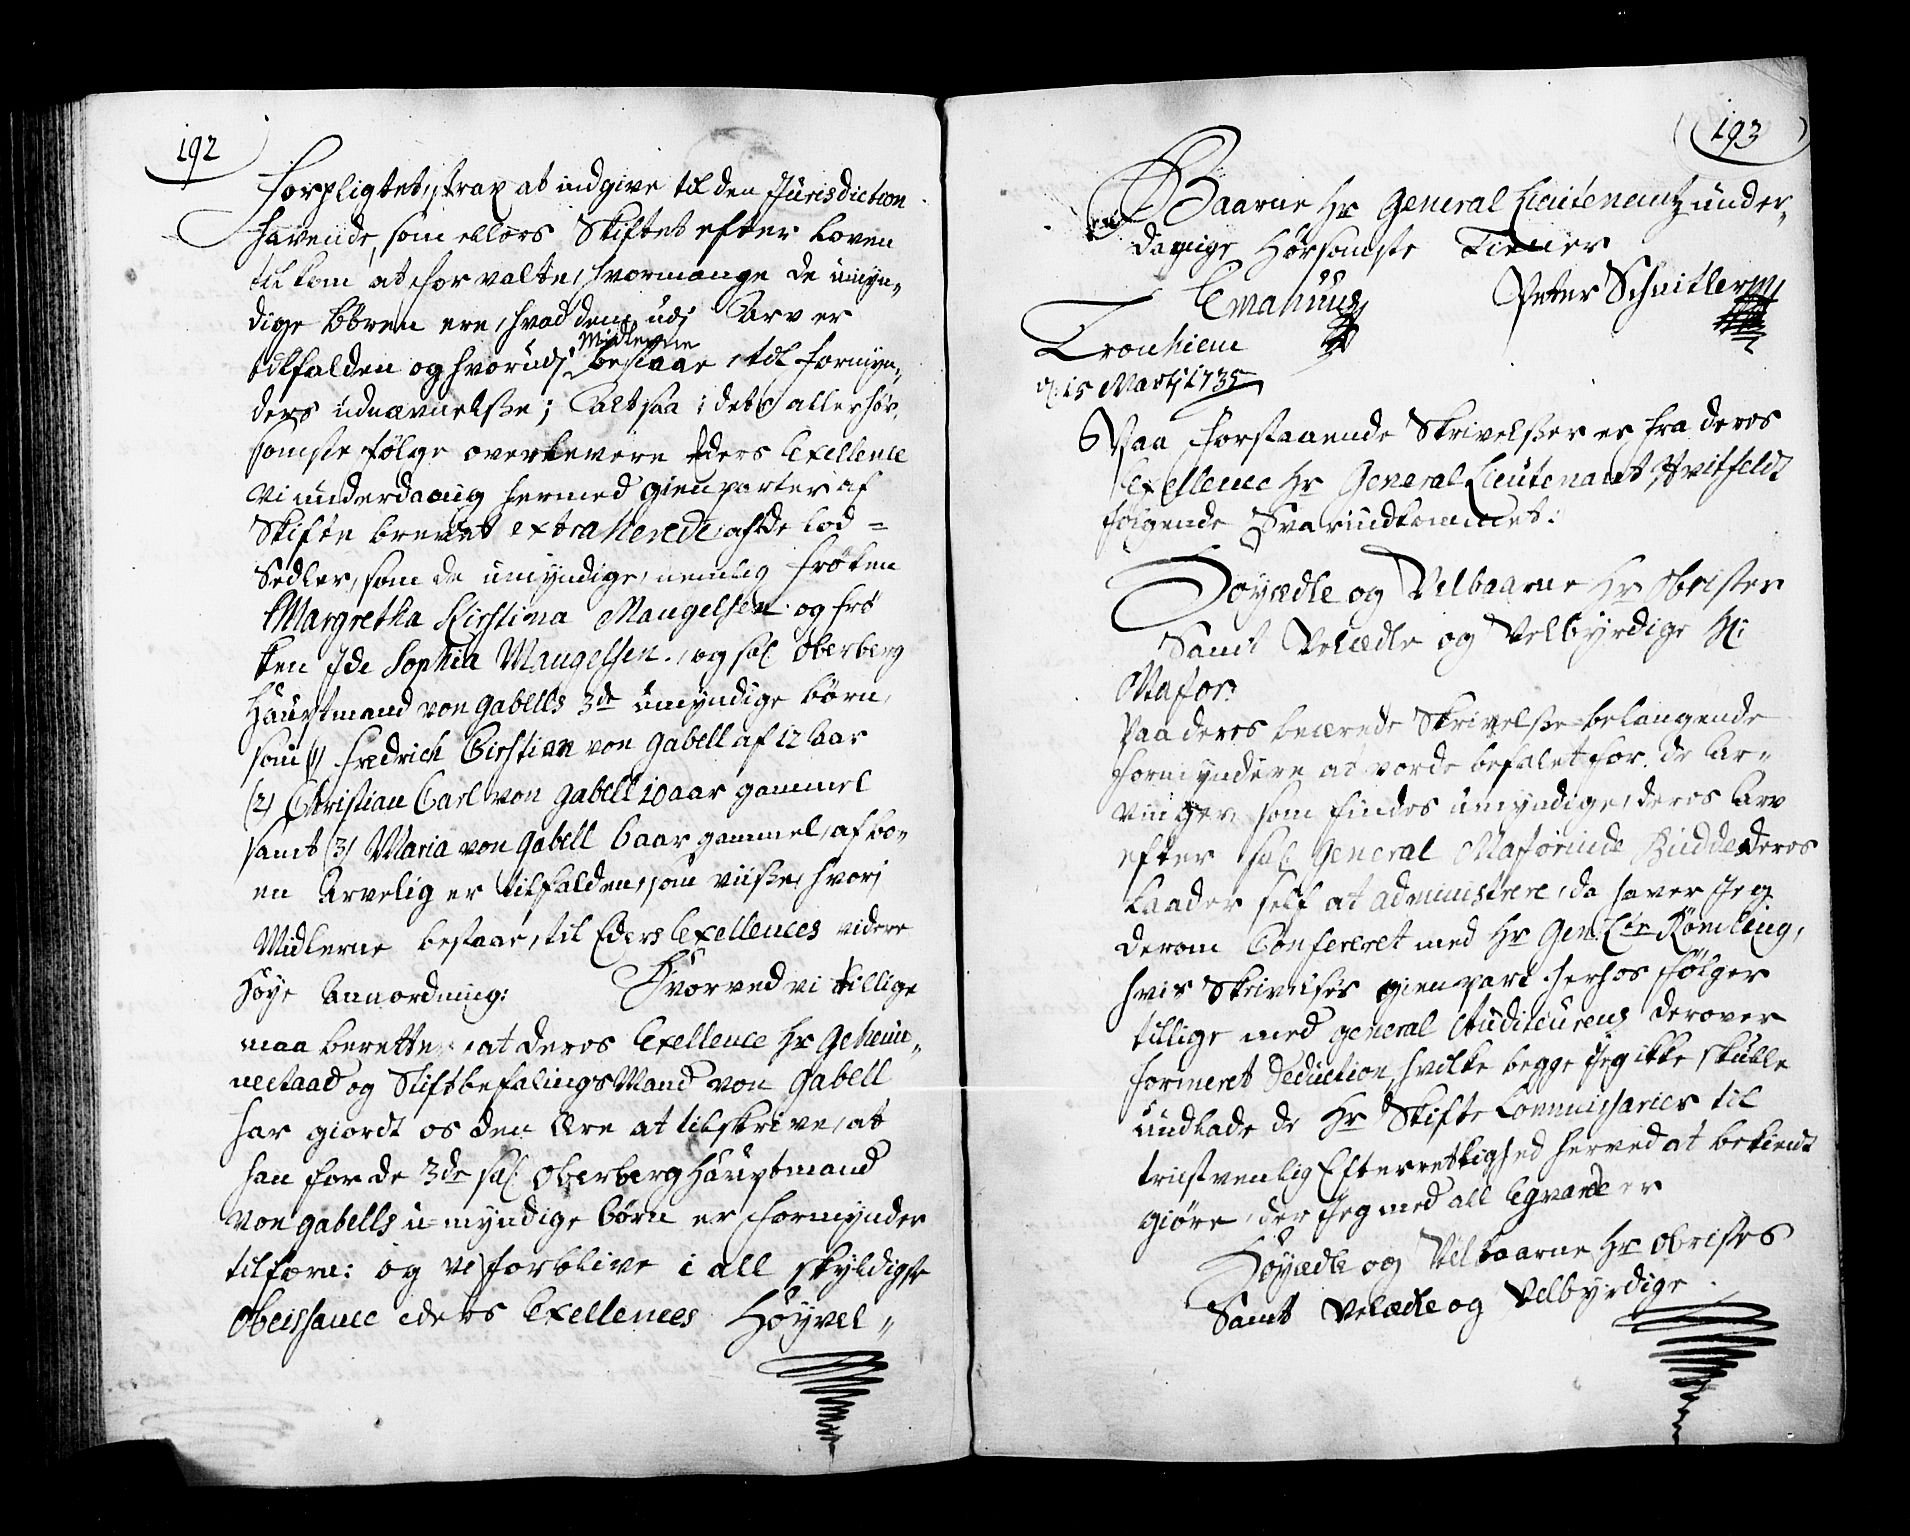 192
forpligtet, strax at indgive til den Jurisdiction
havende, som ellers Skiftet efter Loven
tilkom at forvalte, hvormange de umyn„
dige børen ere, hvad dem udj Arv er
Midlerne
tilfalden og hvorudj bestaar, til formyn„
ders udnævnelsse; Altsaa i dets allerhør„
somste følge overlevere Eders Exellence
vi underdanig hermed gienparter af
Skifte brevet extraherede, af de Lod=
Sedler, som de umyndige, nemlig frøken
Margretha Kirstina Mangelsen. og frø
ken Ide Sophia Mangelsen., og sal. Oberberg
Hauptmand von Gabells 3de umyndige børn,
som (1) Fredrich Cirstian von Gabell af 12 Aar
(2) Christian Carl von Gabell 10 aar gammel
samt (3) Maria von Gabell 6 aar gammel, af bo„
en Arvelig er tilfalden, som viisse, hvorj
Midlerne bestaar, til Eders Exellences videre
Høye Anordning: Hvorved vi tillige
maa berette, at deros Exellence Hr Geheim„
meraad og Stiftbefalings Mand von Gabell
har giordt os den Ære at tilskrive, at
han for de 3de sal. Oberberg Hauptmand
von Gabells u-myndige børn er formynder
tilforn: og vi forblive i all skyldigste
obeissance eders Exellences Høyvel„
193
Baarne Hr General Lieutenantz under„
danige Hørsomste Tiener
Emahuus
Peter Schnitler
Tronhiem
d. 15 Martj 1735
Paa forstaaende Skrivelsser er fra deros
Exellence Hr General Lieutenant Hvitfeldt
følgende Svar indkommet:
Høyædle og Velbaarne Hr Obrister
Samt Velædle og Velbyrdige Hr
Major.
Paa deros beærede Skrivelsse belangende
formyndere at vorde befalet for de Ar„
vinger som findes umyndige, deros Arv
efter sal. General Majorinde Budde deros
Laader self at administrere, da haver Jeg
derom Confereret med Hr Gen. Ltn Römling,
hvis Skrivelses gienpart herhos følger
tillige med general Auditeurens derover
formeret Deduction, hvilke begge Jeg ikke skulle
undlade de Hr Skifte Commissarier til
tienstvenlig Efterretlighed herved at bekiendt
giøre, der Jeg med all Egvarde er
Høyædle og Velbaarne Hr Obristes
Samt Velædle og Velbyrdige